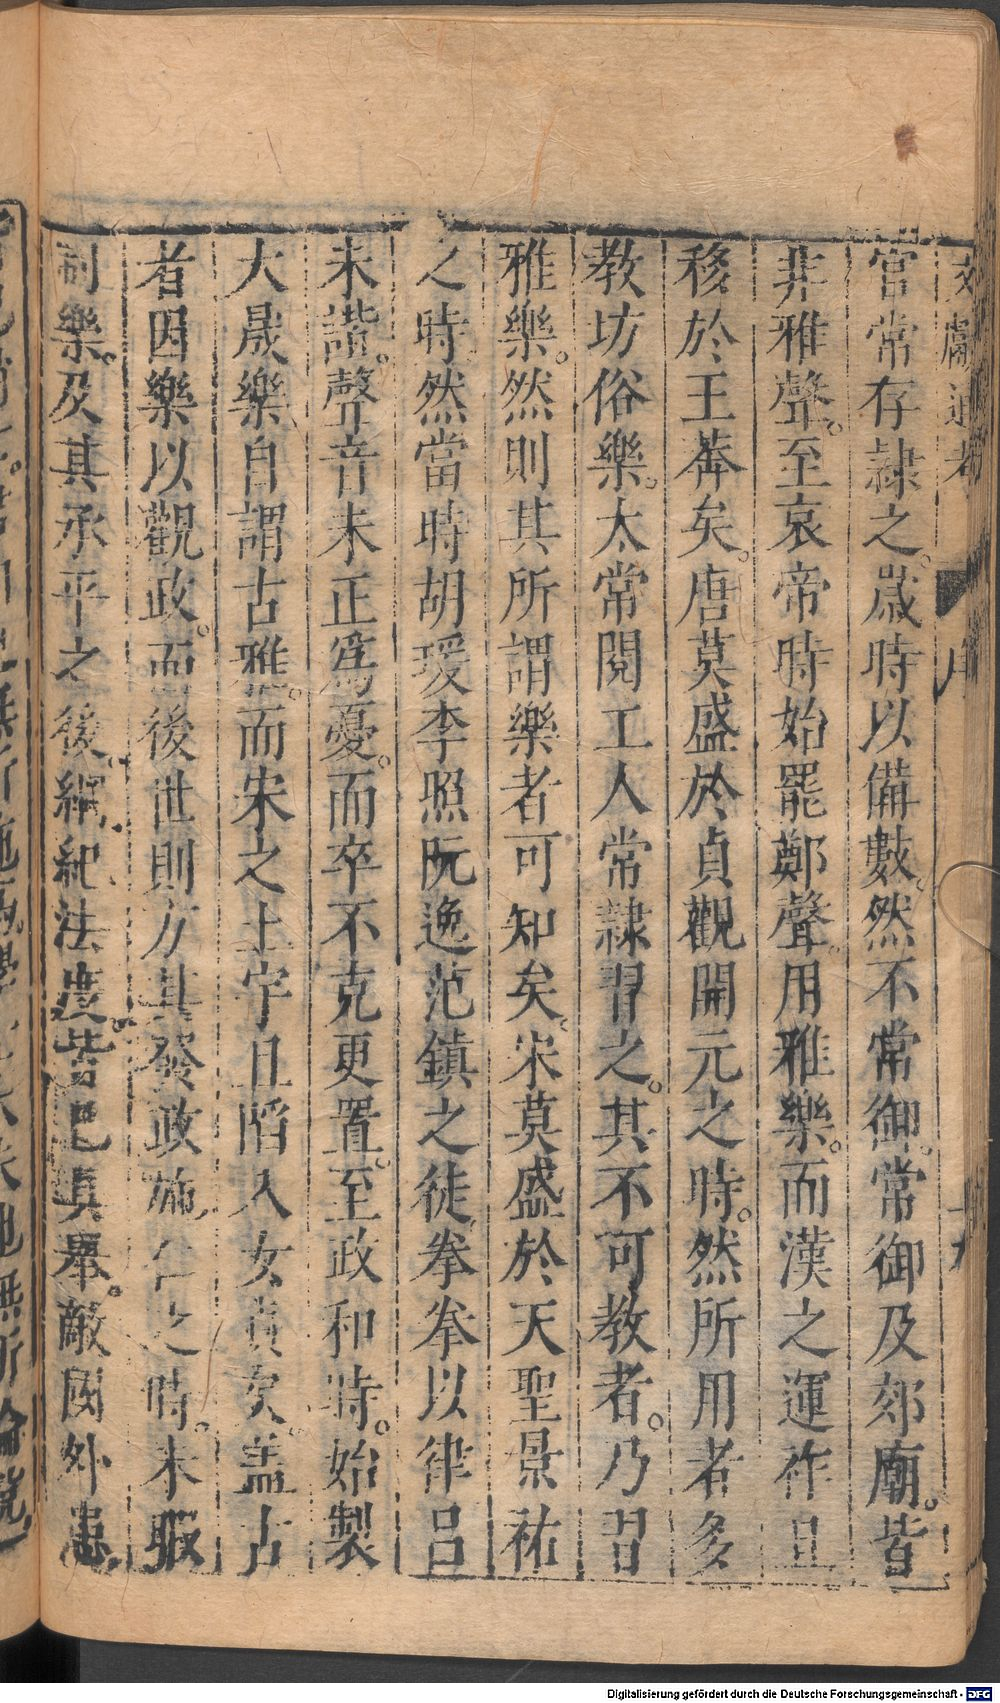 文獻通考
官常存隷之。歲時以備數。然不常御。常御及郊廟。皆
非雅聲。至哀帝時始罷鄭聲。用雅樂。而漢之運祚且
移於王莽矣。唐莫盛於貞觀開元之時。然所用者多
教坊俗樂。太常閱工人常隷習之。其不可教者。乃習
雅樂。然則其所謂樂者可知矣。宋莫盛於天聖景祐
之時。然當時胡瑗李照阮逸范鎮之徒。拳拳以律呂
未諧。聲音未正爲憂。而卒不克更置。至政和時。始製
大晟樂自謂古雅。而宋之土宇且陷入女眞矣。盖古
者因樂以觀政。而後世則方其發政施仁之時。未暇
制樂。及其承平之後。綱紀法度。皆已具舉。敵國外患。
Digitalisierung gefördert durch die Deutsche Forschungsgemeinschaft - DFG